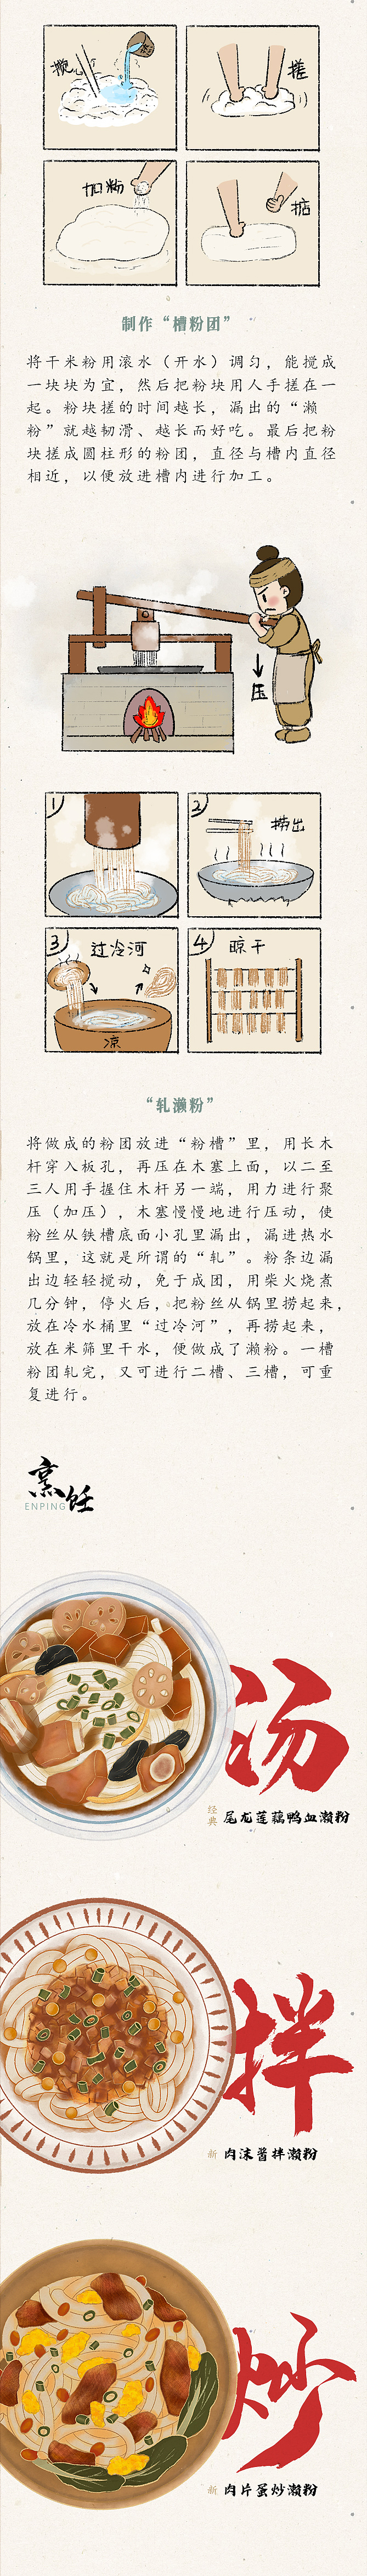 搅
搓
加粉
掂
制作“槽粉团”
将干米粉用滚水（开水）调匀，能搅成
一块块为宜，然后把粉块用人手搓在一
起。粉块搓的时间越长，漏出的“濑
粉”就越韧滑、越长而好吃。最后把粉
块搓成圆柱形的粉团，直径与槽内直径
相近，以便放进槽内进行加工。
压
1
2
捞出
3
过冷河
凉
4
晾干
“轧濑粉”
将做成的粉团放进“粉槽”里，用长木
杆穿入板孔，再压在木塞上面，以二至
三人用手握住木杆另一端，用力进行聚
压（加压），木塞慢慢地进行压动，使
粉丝从铁槽底面小孔里漏出，漏进热水
锅里，这就是所谓的“轧”。粉条边漏
出边轻轻搅动，免于成团，用柴火烧煮
几分钟，停火后，把粉丝从锅里捞起来，
放在冷水桶里“过冷河”，再捞起来，
放在米筛里干水，便做成了濑粉。一槽
粉团轧完，又可进行二槽、三槽，可重
复进行。
烹饪
ENPING
汤
经典
尾龙莲藕鸭血濑粉
拌
新
肉沫酱拌濑粉
炒
新
肉片蛋炒濑粉